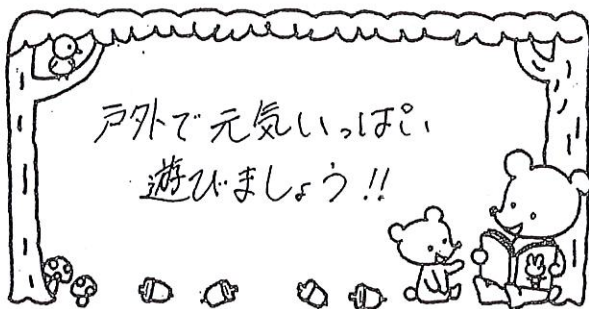 戸外で元気いっぱい
遊びましょう!!